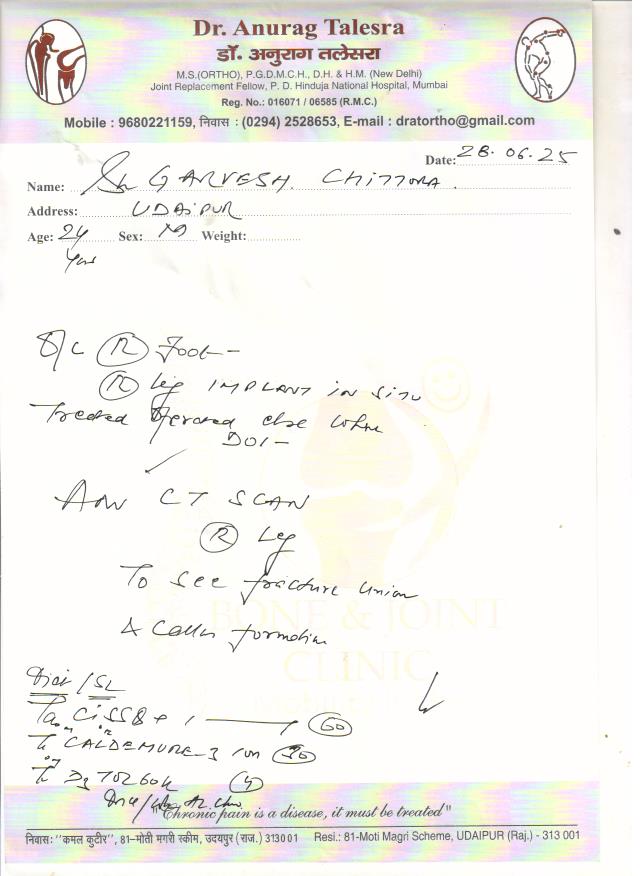 Dr. Anurag Talesra
डॉ. अनुराग तलेसरा
M.S.(ORTHO), P.G.D.M.C.H., D.H. & H.M. (New Delhi)
Joint Replacement Fellow, P. D. Hinduja National Hospital, Mumbai
Reg. No.: 016071 / 06585 (R.M.C.)
Mobile : 9680221159, निवास : (0294) 2528653, E-mail : dratortho@gmail.com
Date: 28.06.25
Name: Sh GARVESH. CHITTORA.
Address: UDAIPUR
Age: 24 Sex: M Weight:
Years
(R) Foot-
(R) Leg IMPLANT in Situ
Treated Operated else where
DOI-
Adv CT SCAN
(R) Leg
To see fracture union
& Callus formation
BONE & JOINT
CLINIC
(60)
(30)
D3 60k (4)
"Chronic pain is a disease, it must be treated"
निवास: "कमल कुटीर", 81-मोती मगरी स्कीम, उदयपुर (राज.) 313001 Resi.: 81-Moti Magri Scheme, UDAIPUR (Raj.) - 313 001